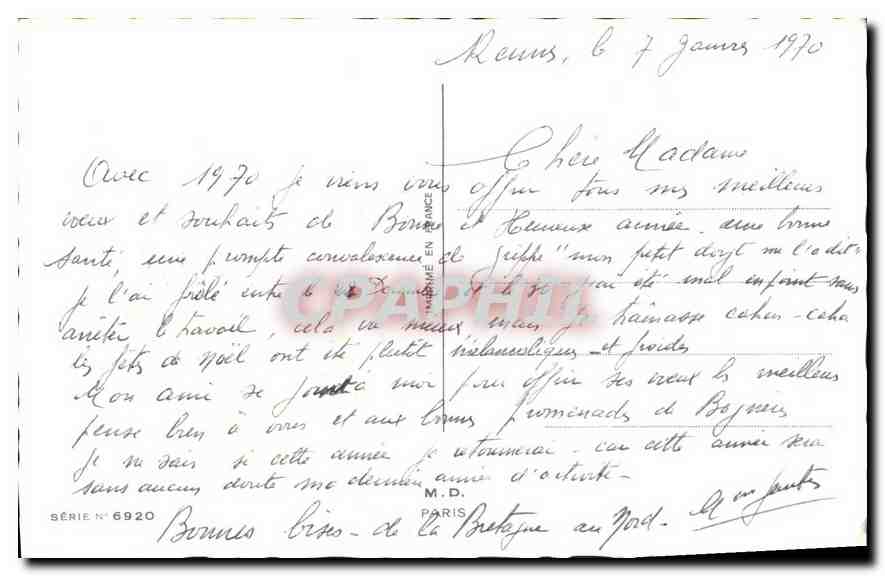 Rennes, le 7 Janvier 1970
Chère Madame
Avec 1970 je viens vous offrir tous mes meilleurs
voeux et souhaits de Bonne et Heureuse année, une bonne
santé, une prompte convalescence de grippe "mon petit doigt me l'a dit"
je l'ai frôlé entre le et le j'ai été mal en point sans
arrêter le travail, cela va mieux mais je traînasse cahin-caha
les fêtes de Noël ont été plutôt mélancoliques et froides
Mon ami se joint à moi pour offrir ses voeux les meilleurs
pense bien à vous et aux bonnes promenades de Bagnères
Je ne sais si cette année je retournerai - car cette année sera
sans aucun doute ma dernière année d'activité -
Bonnes bises - de la Bretagne au Nord -
IMPRIMÉ EN FRANCE
M.D.
PARIS
SÉRIE N° 6920
CPAPHIL